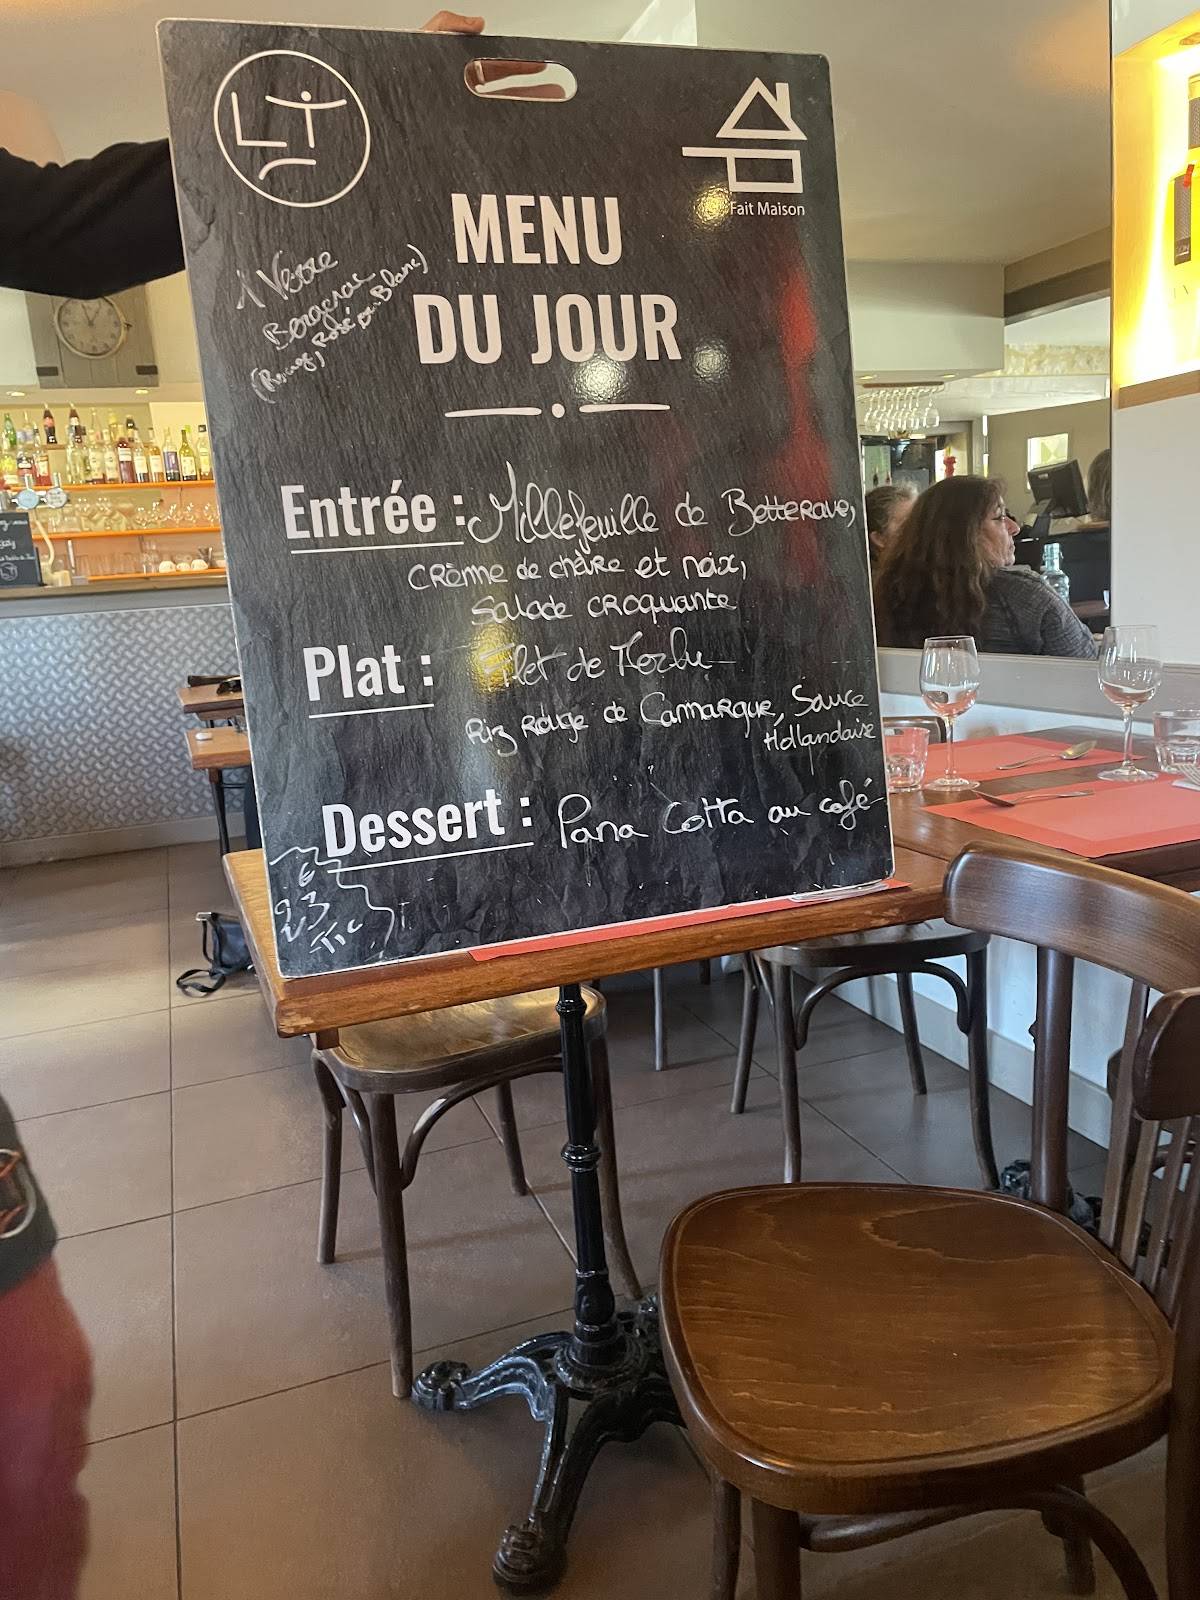 LT
Fait Maison
MENU
DU JOUR
1 Verre
Bergerac
(Rouge, Rosé ou Blanc)
Entrée : Millefeuille de Betterave,
crème de chèvre et noix,
Salade croquante
Plat : Filet de Merlu
Riz Rouge de Camargue, Sauce
Hollandaise
Dessert : Pana Cotta au café
€
23
TTC